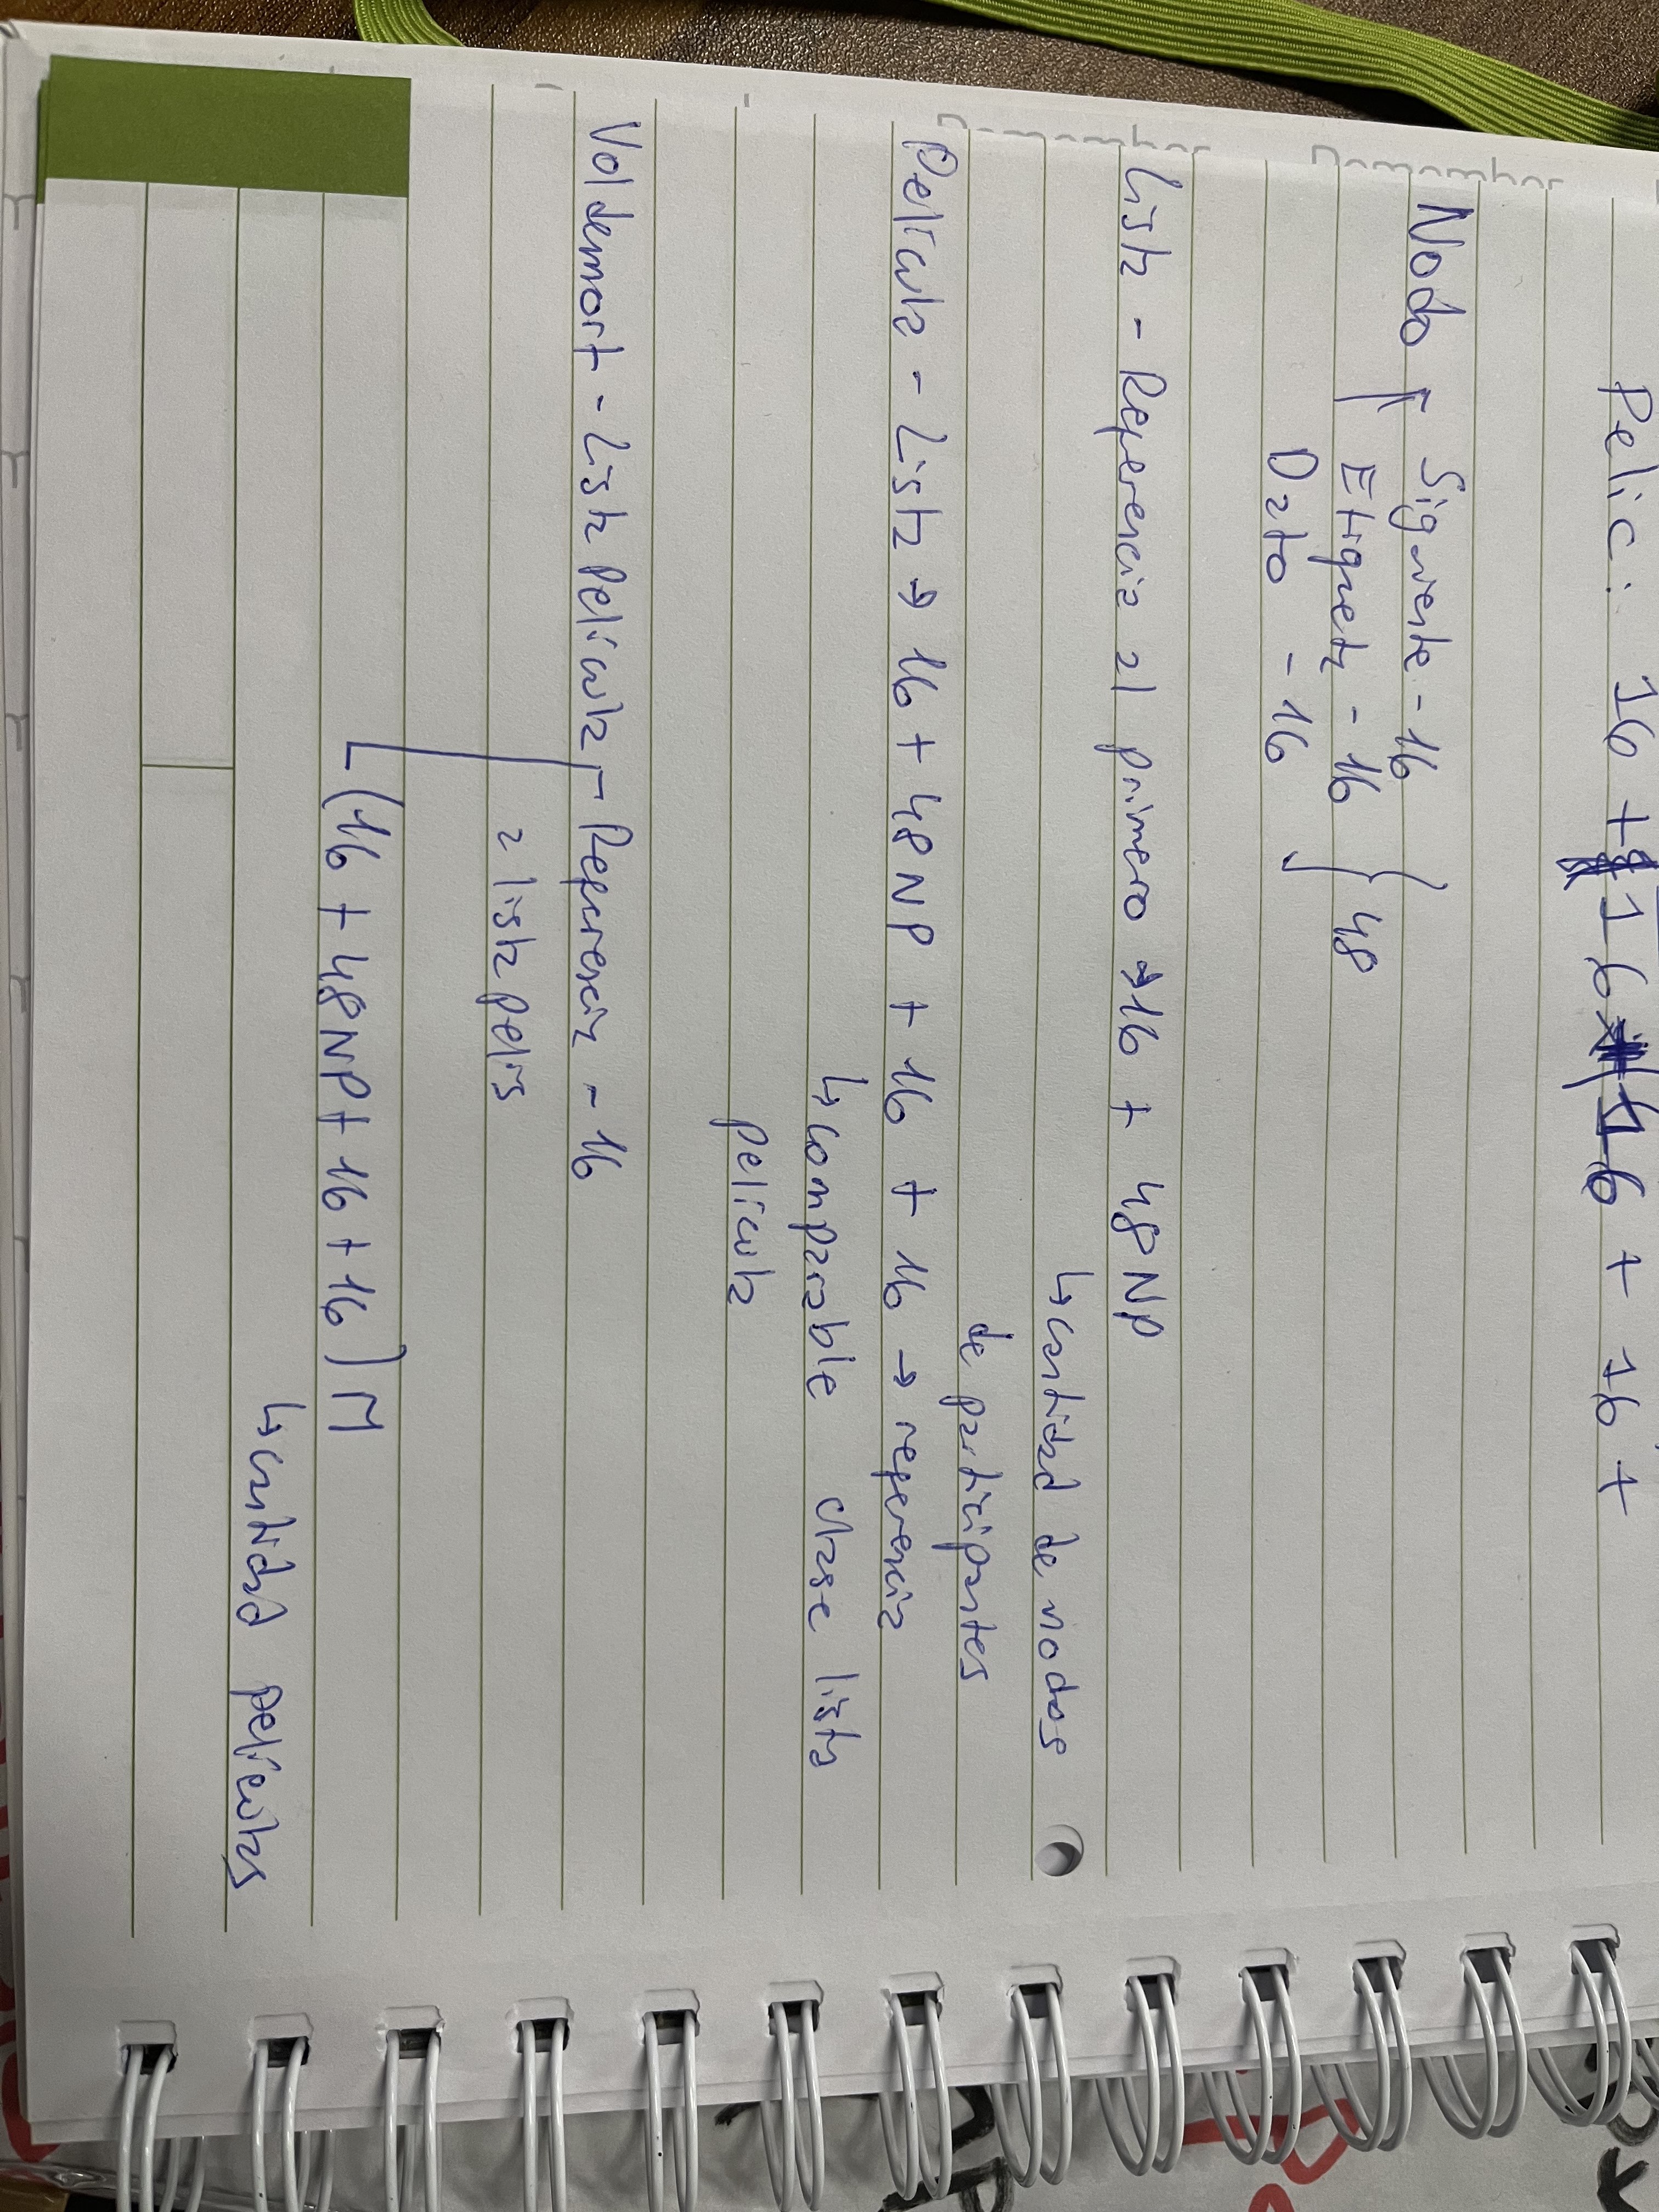 Pelic: 16 + 16 16 + 16 +
Nodo Siguiente - 16
Etiqueta - 16 } 48
Dato - 16
Lista - Referencia al primero → 16 + 48 NP
↳ cantidad de nodos
de participantes
Pelicula - Lista → 16 + 48 NP + 16 + 16 → referencia
↳ comparable clase lista
pelicula
Voldemort - Lista Pelicula Referencia - 16
a lista pelis
(16 + 48NP + 16 + 16) M
↳ cantidad peliculas